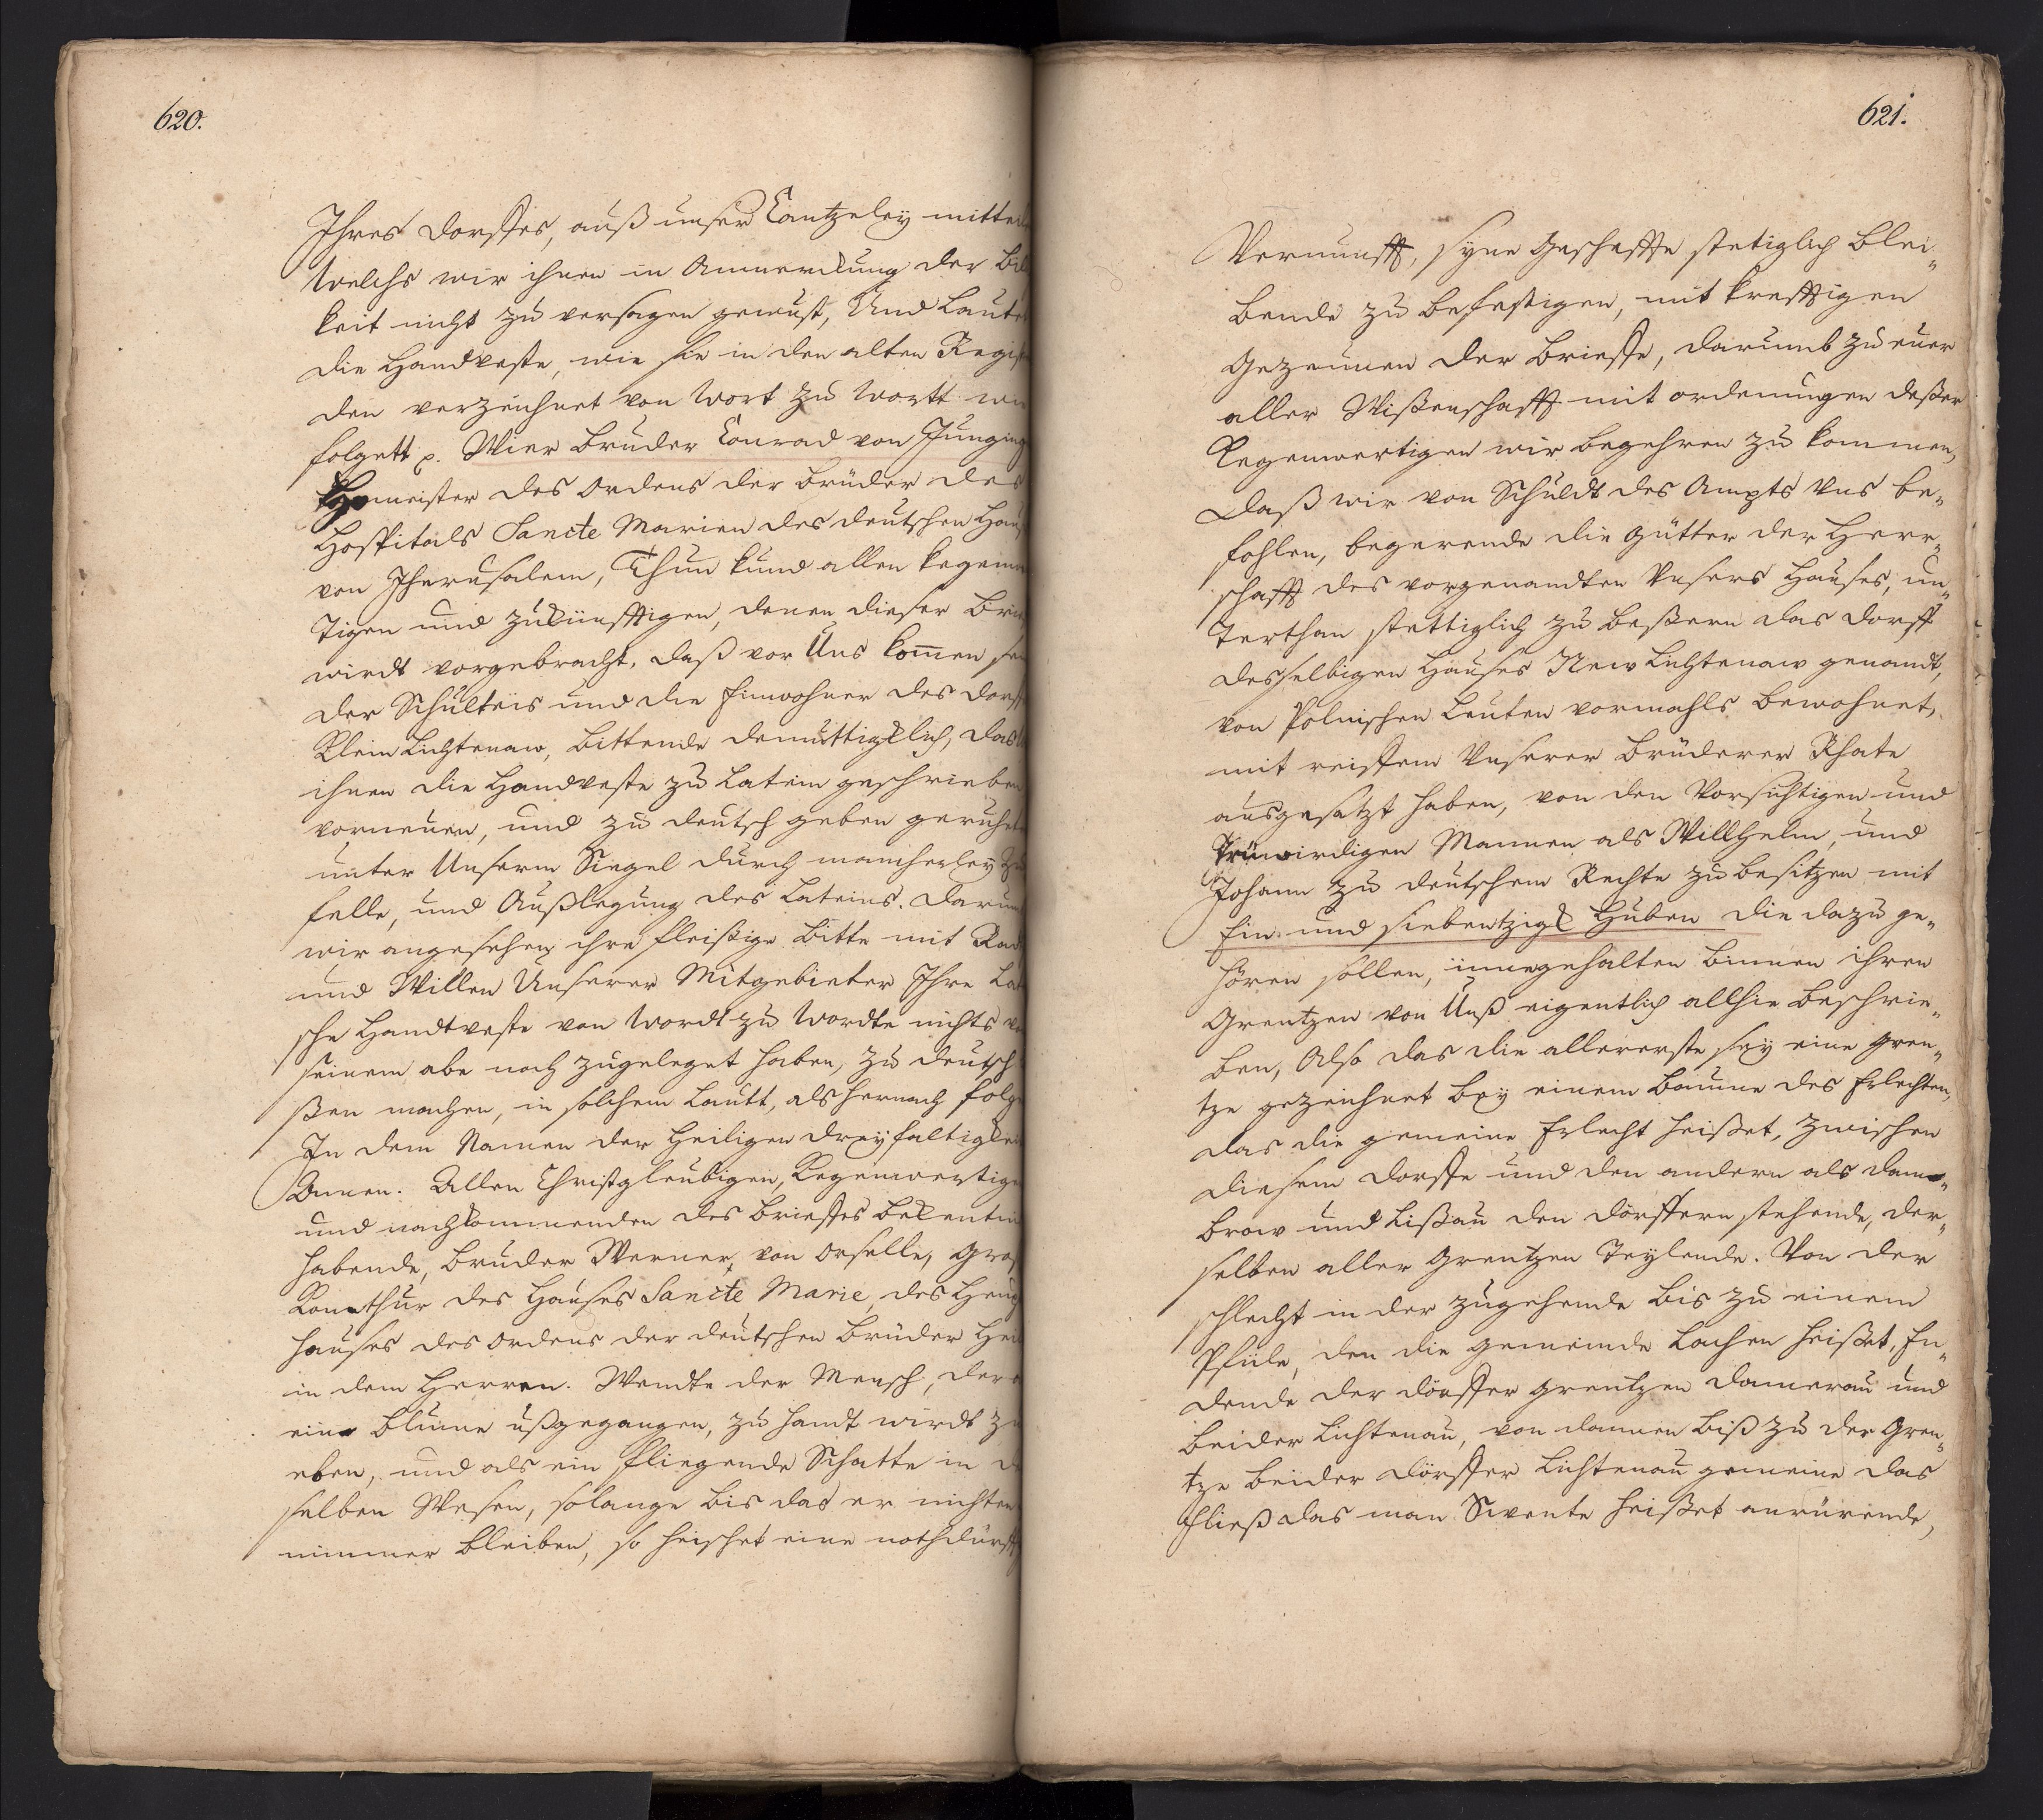 620.
Ihres Dorffes, auß unser Cantzeley mitteil
Welchs wir ihnen in Anmerckung der Bil
keit nicht zu versagen gewust, Und Laute
die Handveste, wie sie in den alten Regist
den verzeichnet von Wort zu Wortt wie
folgett p. Wier Bruder Conrad von Junging
Homeister des Ordens der Brüder des
Hospitals Sancte Marien des deutschen Hau
von Jherusalem, Thun kund allen kegenw
Tigen und zukünfftigen, denen dieser Brie
wirdt vorgebracht, daß vor Uns komen sein
der Schulteis und die Einwohner des Dorff
Klein Lichtenaw, bittende demüttigklich, das
ihnen die Handveste zu Latein geschrieben
vorneuen, und zu deutsch geben geruhet
unter Unserm Siegel durch mancherley Zu
felle, und Außlegung des Lateins. Darum
wir angesehen ihre fleißige Bitte mit Rad
und Willen Unserer Mitgebieter Ihre Lat
sche Handtveste von Wordt zu Wordte nichts v
seinem abe noch zugeleget haben, zu deutsch
ßen machen, in solchem Lautt, als hernach folg
In dem Namen der Heiligen Dreyfaltigkei
Amen. Allen Christgleubigen, Kegenwertige
und nachkommenden des Brieffes bekentni
habende, Bruder Werner von Orselle, Groß
Komthur des Hauses Sancte Marie, des Heup
hauses des Ordens der deutschen Brüder Heil
in dem Herren. Wendte der Mensch, der
eine Blume ußgegangen, zu handt wirdt zu
eben, und als ein fliegende Schatte in d
selben Wesen, solange bis das er nichten
nimmer bleiben, so heischet eine nothdürff
621.
Vernunfft, syne Gescheffte stetiglich blei„
bende zu befestigen, mit krefftigen
Gezeunen der Brieffe, darumb zu euer
aller Wißenschafft mit ordenungen deßer
Kegenwertigen wir begehren zu kommen,
Daß wir von Schuldt des Ampts Uns be„
fohlen, begerende die gütter der Herr„
schafft des vorgenandten Unsers Hauses, un„
terthan stettiglich zu beßern das Dorff
desselbigen Hauses New Lichtenaw genandt,
von Polnischen Leuten vormahls bewohnet,
mit reiffem Unserer Brüderer Rhate
ausgesatzt haben, von den Vorsichtigen und
Trüwirdigen Mannen als Willhelm, und
Johann zu deutschem Rechte zu besitzen mit
Ein und siebentzigk Huben die dazu ge„
hören sollen, innegehalten binnen ihren
Grentzen von Unß eigentlich allhie beschrie„
ben, Also das die allererste sey eine Gren„
tze gezeichnet bey einem Baume des Erlechten,
das die gemeine Erlecht heißet, zwischen
diesem Dorffe und den andern als Dame„
brow und Lißau den dörffern stehende, der„
selben aller Grentzen Teylende. Von der
schlecht in der zugehende bis zu einem
Pfüle, den die gemeinde Lachen heißet, En„
dende der dörffer Grentzen Damerau und
beider Lichtenau, von dannen biß zu der Gren„
tze beider dörffer Lichtenau gemeine das
Fließ das man Swente heißet anrürende,